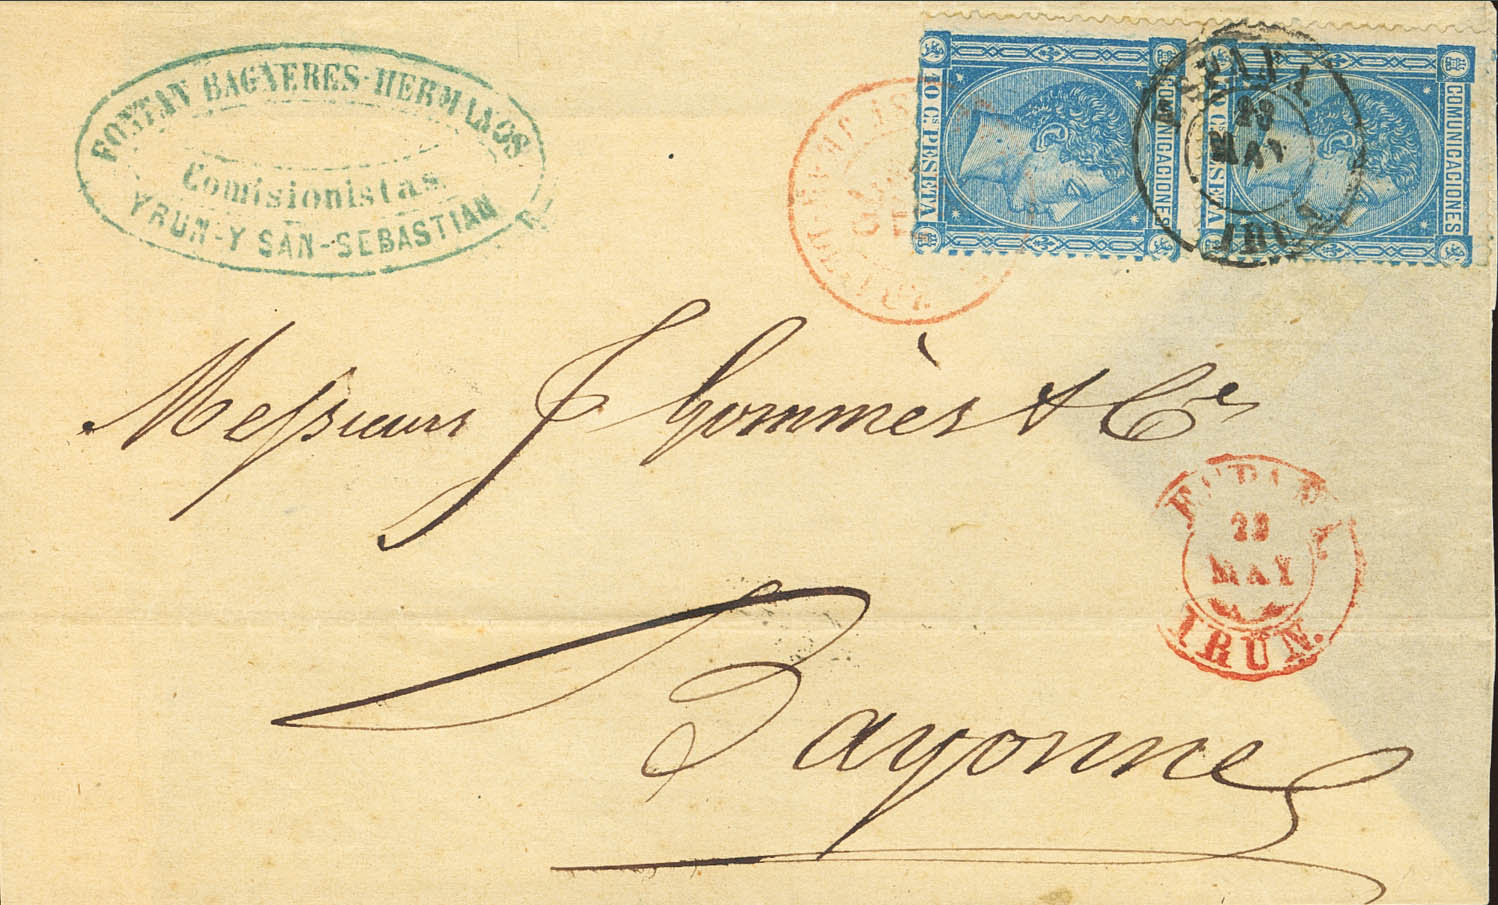 FONTAN BAGNERES-HERMANOS
Comisionistas
YRUN-Y SAN-SEBASTIAN
10 Cs PESETA
COMUNICACIONES
Cs PESETA
COMUNICACIONES
MAY
IRUN
Messieurs J Gommès & Cie
MAY
IRUN.
Bayonne